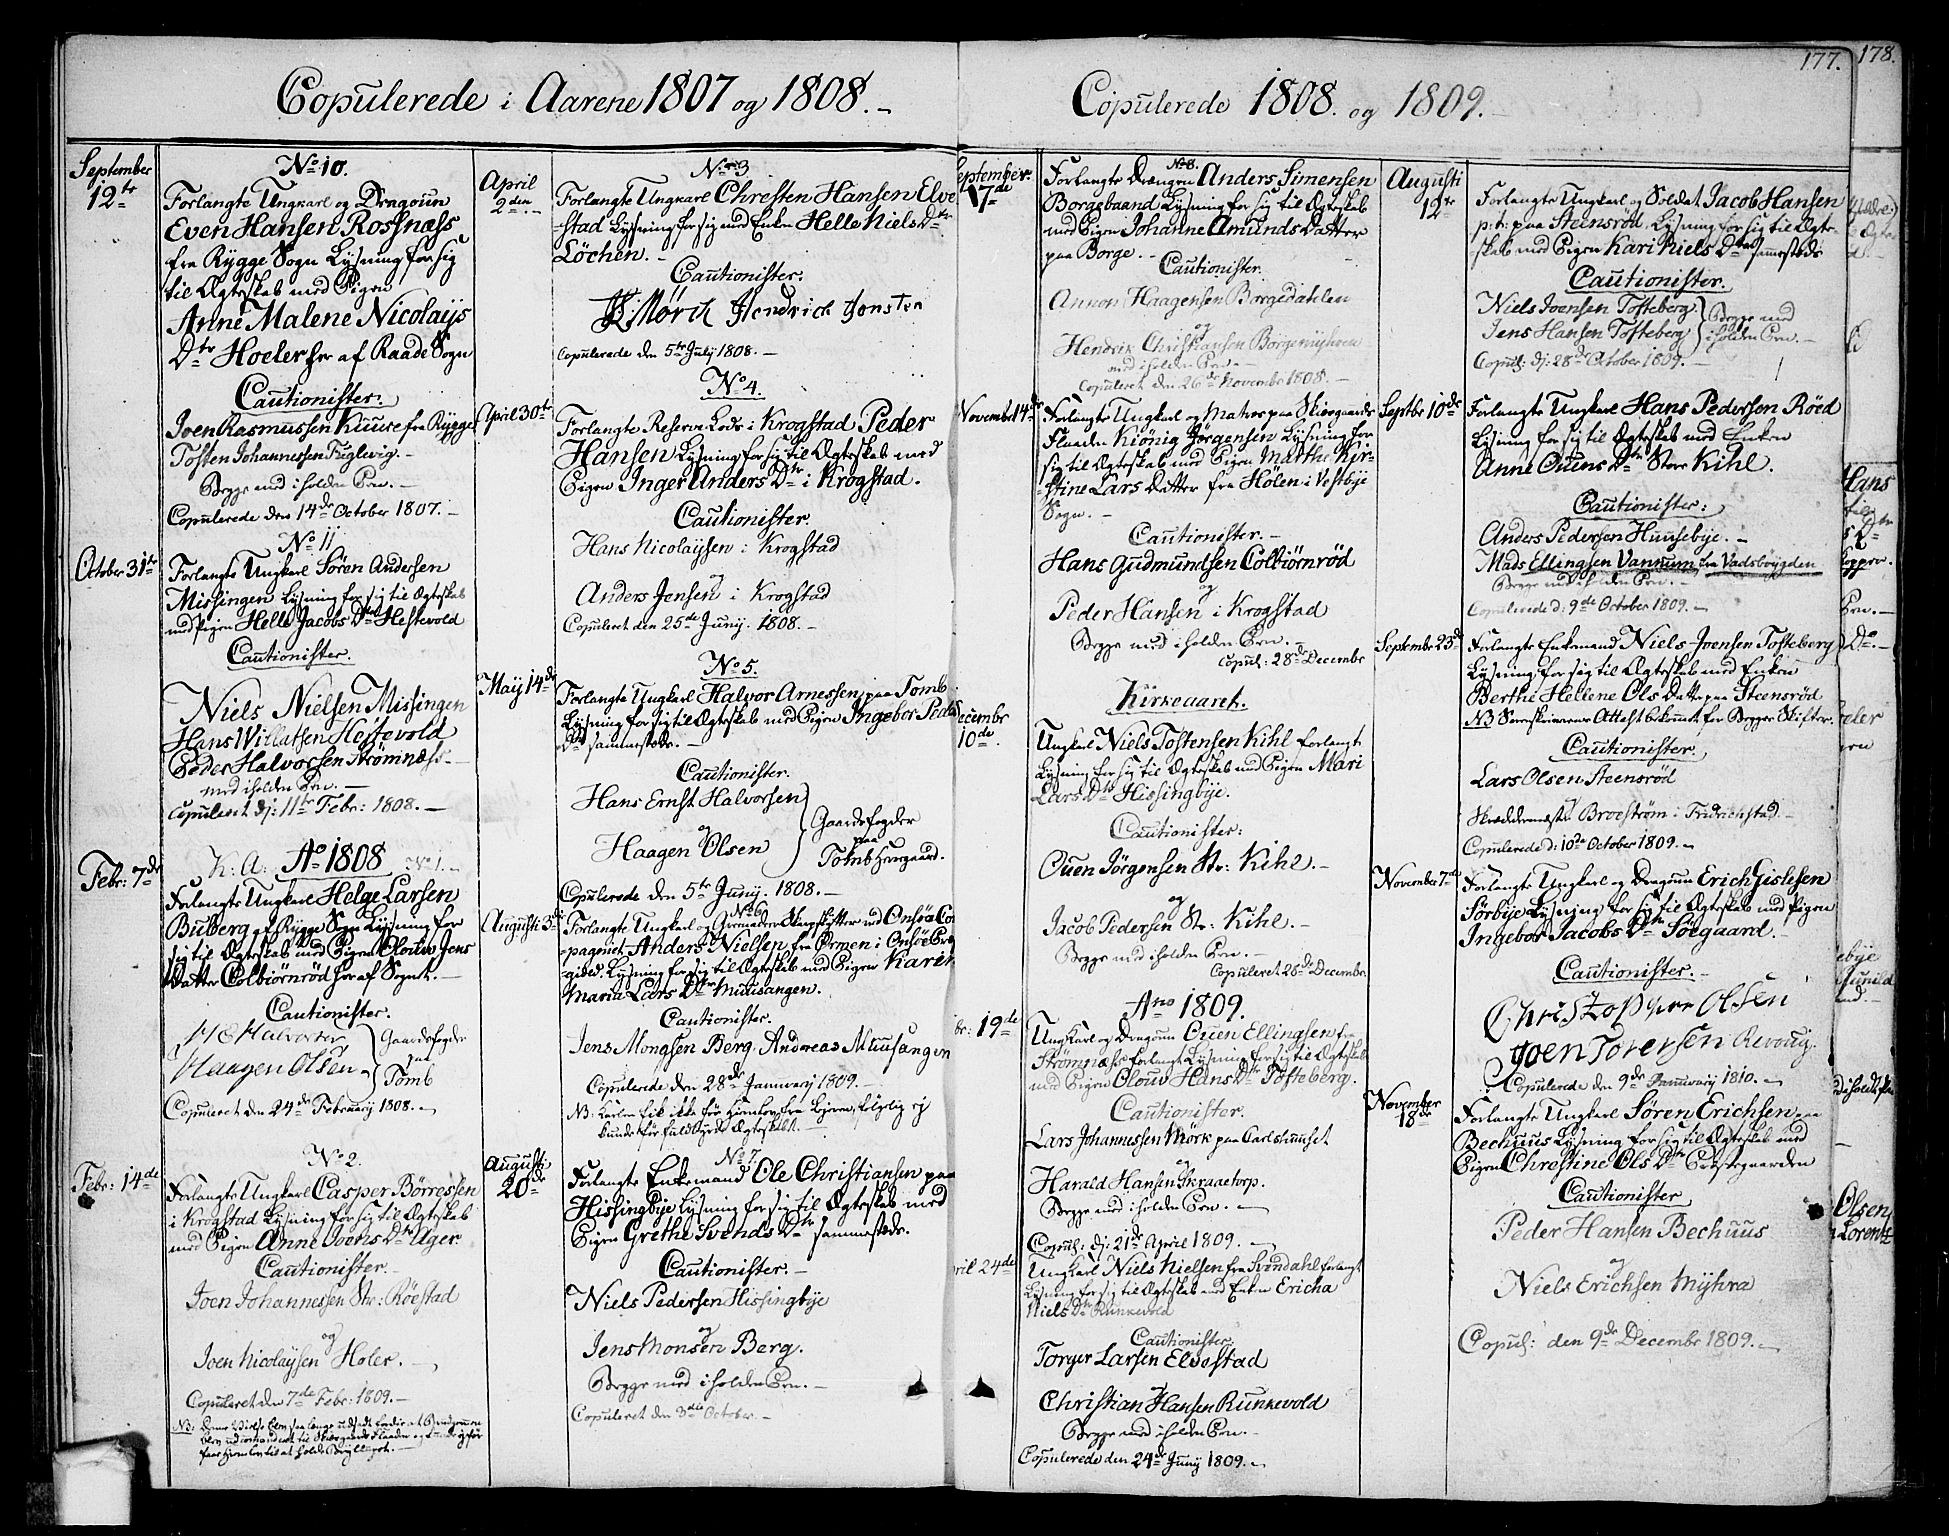 Copulerede i Aarene 1807 og 1808.
September
12te
No 10.
Forlangte Ungkarl og Dragoun
Even Hansen Rossnæss
fra Rygge Sogn Lysning for sig
til Ægteskab med Pigen
Anne Malene Nicolaijs
Dtr Hoeler her af Raade Sogn
Cautionister.
Joen Rasmussen Kuure fra Rygge
Tosten Johannessen Fuglevig.
Begge med iholden Pen.
Copulerede den 14de October 1807.
October 31te
No 11
Forlangte Ungkarl Sören Andersen
Missingen Lysning for sig til Ægteskab
med Pigen Helle Jacobs Dtr Hestevold
Cautionister.
Niels Nielsen Missingen
Hans Willatsen Hestevold
Peder Halvorsen Strømnæss.
med iholden Pen.
Copuleret d: 11te Febr: 1808.
Febr: 7de
K: A: Ao 1808 No 1.
Forlangte Ungkarl Helge Larsen
Buberg af Rygge Sogn Lysning for
sig til Ægteskab med Pigen Olouw Jens
Datter Colbiörnröd her af Sognet.
Cautionister.
H E Halvorsen
Haagen Olsen
Gaardsfogder
paa
Tomb
Copuleret den 24de Februarij 1808.
Febr: 14de
No 2.
Forlangte Ungkarl Casper Börresen
i Krogstad Lysning for sig til Ægteskab
med Pigen Anne Joens Dtr Uger
Cautionister.
Joen Johannessen Str: Röestad
og
Joen Nicolaysen Holer.
Copuleret den 7de Febr: 1809.
April
2den
No 3
Forlangte Ungkarl Chresten Hansen Elve
-stad Lysning for sig med Enken Helle Niels Dtr
Löchen.
Cautionister.
Mørch Hendrick Jensen
Copulerede den 5te July 1808.
April 30te
No 4.
Forlangte Reserve-Lods i Krogstad Peder
Hansen Lysning for sig til Ægteskab med
Pigen Inger Anders Dtr i Krogstad.
Cautionister.
Hans Nicolaysen i Krogstad
og
Anders Jensen i Krogstad
Copuleret den 25de Junij. 1808.
May 14de
No 5.
Forlangte Ungkarl Halvor Arnessen paa Tomb
Lysning for sig til Ægteskab med Pigen Ingebor Peders
Dtr sammesteds.
Cautionister.
Hans Ernst Halvorsen
og
Haagen Olsen
Gaardsfogder
paa
Tomb Herregaard.
Copulerede den 5te Junij. 1808.
Augusti 3de
No 6
Forlangte Ungkarl og Skarpskytter ved Onsöe Com
-pagniet Anders Nielsen fra Ørmen i Onsöe Præste
gield. Lysning for sig til Ægteskab med Pigen Karen
Maria Lars Dtr Muusangen.
Cautionister.
Jens Mongsen Berg. Andreas Muusangen
Copulerede den 28de Januarij 1809.
Augusti
20de
No 7.
Forlangte Enkemand Ole Christiansen paa
Hissingbye Lysning for sig til Ægteskab med
Pigen Grethe Svends Dtr sammesteds.
Cautionister.
Niels Pedersen Hissingbye
og
Jens Monsen Berg.
Begge med iholden Pen.
Copuleret den 3die October.
Copulerede 1808. og 1809.
177.
178.
September
17de
No 8.
Forlangte Drengen Anders Simensen
Borgebaand Lysning for sig til Ægteskab
med Pigen Johanne Amunds Datter
paa Borge.
Cautionister.
Annon Haagensen Borgedahlen
og
Hendrix Christiansen Borgemyhren
med iholden Pen.
Copuleret den 26de Novembr 1808.
Novembr 14de
Forlangte Ungkarl og Matros paa Skiergaards
Flaaden Kiönig Jörgensen Lysning for
sig til Ægteskab med Pigen Marthe Kir-
-stine Lars Datter fra Hölen i Vestbye
Sogn.
Cautionister.
Hans Gudmundsen Colbiörnröd
og
Peder Hansen i Krogstad
Begge med iholden Pen.
Copul: 28de Decembr
Kirkeaaret.
Decembr
10de
Ungkarl Niels Tostensen Kihl forlangt
Lysning for sig til Ægteskab med Pigen Mari
Lars Dtr Hissingbye.
Cautionister:
Ouen Jörgensen Str: Kihl.
og
Jacob Pedersen Str: Kihl.
Begge med iholden Pen.
Copuleret 28de Decembr
Ano 1809.
19de
Ungkarl og Dragoun Ouen Ellingsen fra
Strömnæs forlangt Lysning for sig til Ægteskab
med Pigen Olouw Hans Dtr Tofteberg.
Cautionister.
Lars Johannessen Mörk paa Carlshuuset
og
Harald Hansen Skraatorp.
Begge med iholden Pen.
Copul: d: 21de April 1809.
April 24de
Ungkarl Niels Nielsen fra Svindahl forlangt
Lysning for sig til Ægteskab med Enken Ericha
Niels Dtr Runkevold
Cautionister
Torger Larsen Elvestad
og
Christian Hansen Runkevold
Begge med iholden Pen.
Copulerede den 24de Junij 1809.
Augusti
12te
Forlangte Ungkarl og Soldat Jacob Hansen
p: t: paa Steinsröd, Lysning for sig til Ægte-
skab med Pigen Kari Niels Dtr sammesteds
Cautionister.
Niels Joensen Tofteberg
Jens Hansen Tofteberg
Begge med
iholden Pen.
Copul: d: 28de October 1809.
Septbr 10de
Forlangte Ungkarl Hans Pedersen Röed
Lysning for sig til Ægteskab med Enken
Anne Ouens Dtr Store Kihl.
Cautionister:
Anders Pedersen Huusebye.
Mads Ellingsen Vannum fra Vadsböygden
Begge med iholden Pen.
Copulerede d: 9de October 1809.
Septembr 23de
Forlangte Enkemand Niels Joensen Tofteberg
Lysning for sig til Ægteskab med Enken
Berthe Hellene Ols Datter paa Steensröd
NB Sorenskriverens Attest bekommet for Begges Skifter.
Cautionister.
Lars Olsen Steensröd
og
Skræddermester Broeström i Fridrichstad.
Copulerede d: 10de October 1809.
November 7de
Forlangte Ungkarl og Dragoun Erich Gislesen
Sörbye Lysning for sig til Ægteskab med Pigen
Ingebor Jacobs Dtr Söegaard.
Cautionister.
Christopher Olsen
Joen Torersen
Copulerede den 9de Januarij 1810.
November
18de
Forlangte Ungkarl Sören Erichsen paa
Bechuus Lysning for sig til Ægteskab med
Pigen Chrestine Ols Dtr Prestegaarden
Cautionister
Peder Hansen Bechuus
og
Niels Erichsen Myhra
Copul: den 9de Decembr 1809.
Hans
Olsen
Lorentz